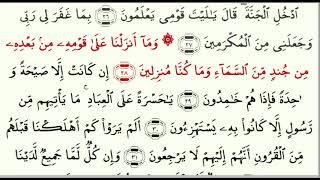 ٱدْخُلِ ٱلْجَنَّةَ ۖ قَالَ يَٰلَيْتَ قَوْمِى يَعْلَمُونَ ٢٦ بِمَا غَفَرَ لِى رَبِّى
وَجَعَلَنِى مِنَ ٱلْمُكْرَمِينَ ٢٧ ۞ وَمَآ أَنزَلْنَا عَلَىٰ قَوْمِهِۦ مِنۢ بَعْدِهِۦ
مِن جُندٍ مِّنَ ٱلسَّمَآءِ وَمَا كُنَّا مُنزِلِينَ ٢٨ إِن كَانَتْ إِلَّا صَيْحَةً وَ
ٰحِدَةً فَإِذَا هُمْ خَٰمِدُونَ ٢٩ يَٰحَسْرَةً عَلَى ٱلْعِبَادِ ۚ مَا يَأْتِيهِم مِّن
رَّسُولٍ إِلَّا كَانُوا۟ بِهِۦ يَسْتَهْزِءُونَ ٣٠ أَلَمْ يَرَوْا۟ كَمْ أَهْلَكْنَا قَبْلَهُم
مِّنَ ٱلْقُرُونِ أَنَّهُمْ إِلَيْهِمْ لَا يَرْجِعُونَ ٣١ وَإِن كُلٌّ لَّمَّا جَمِيعٌ لَّدَيْنَا